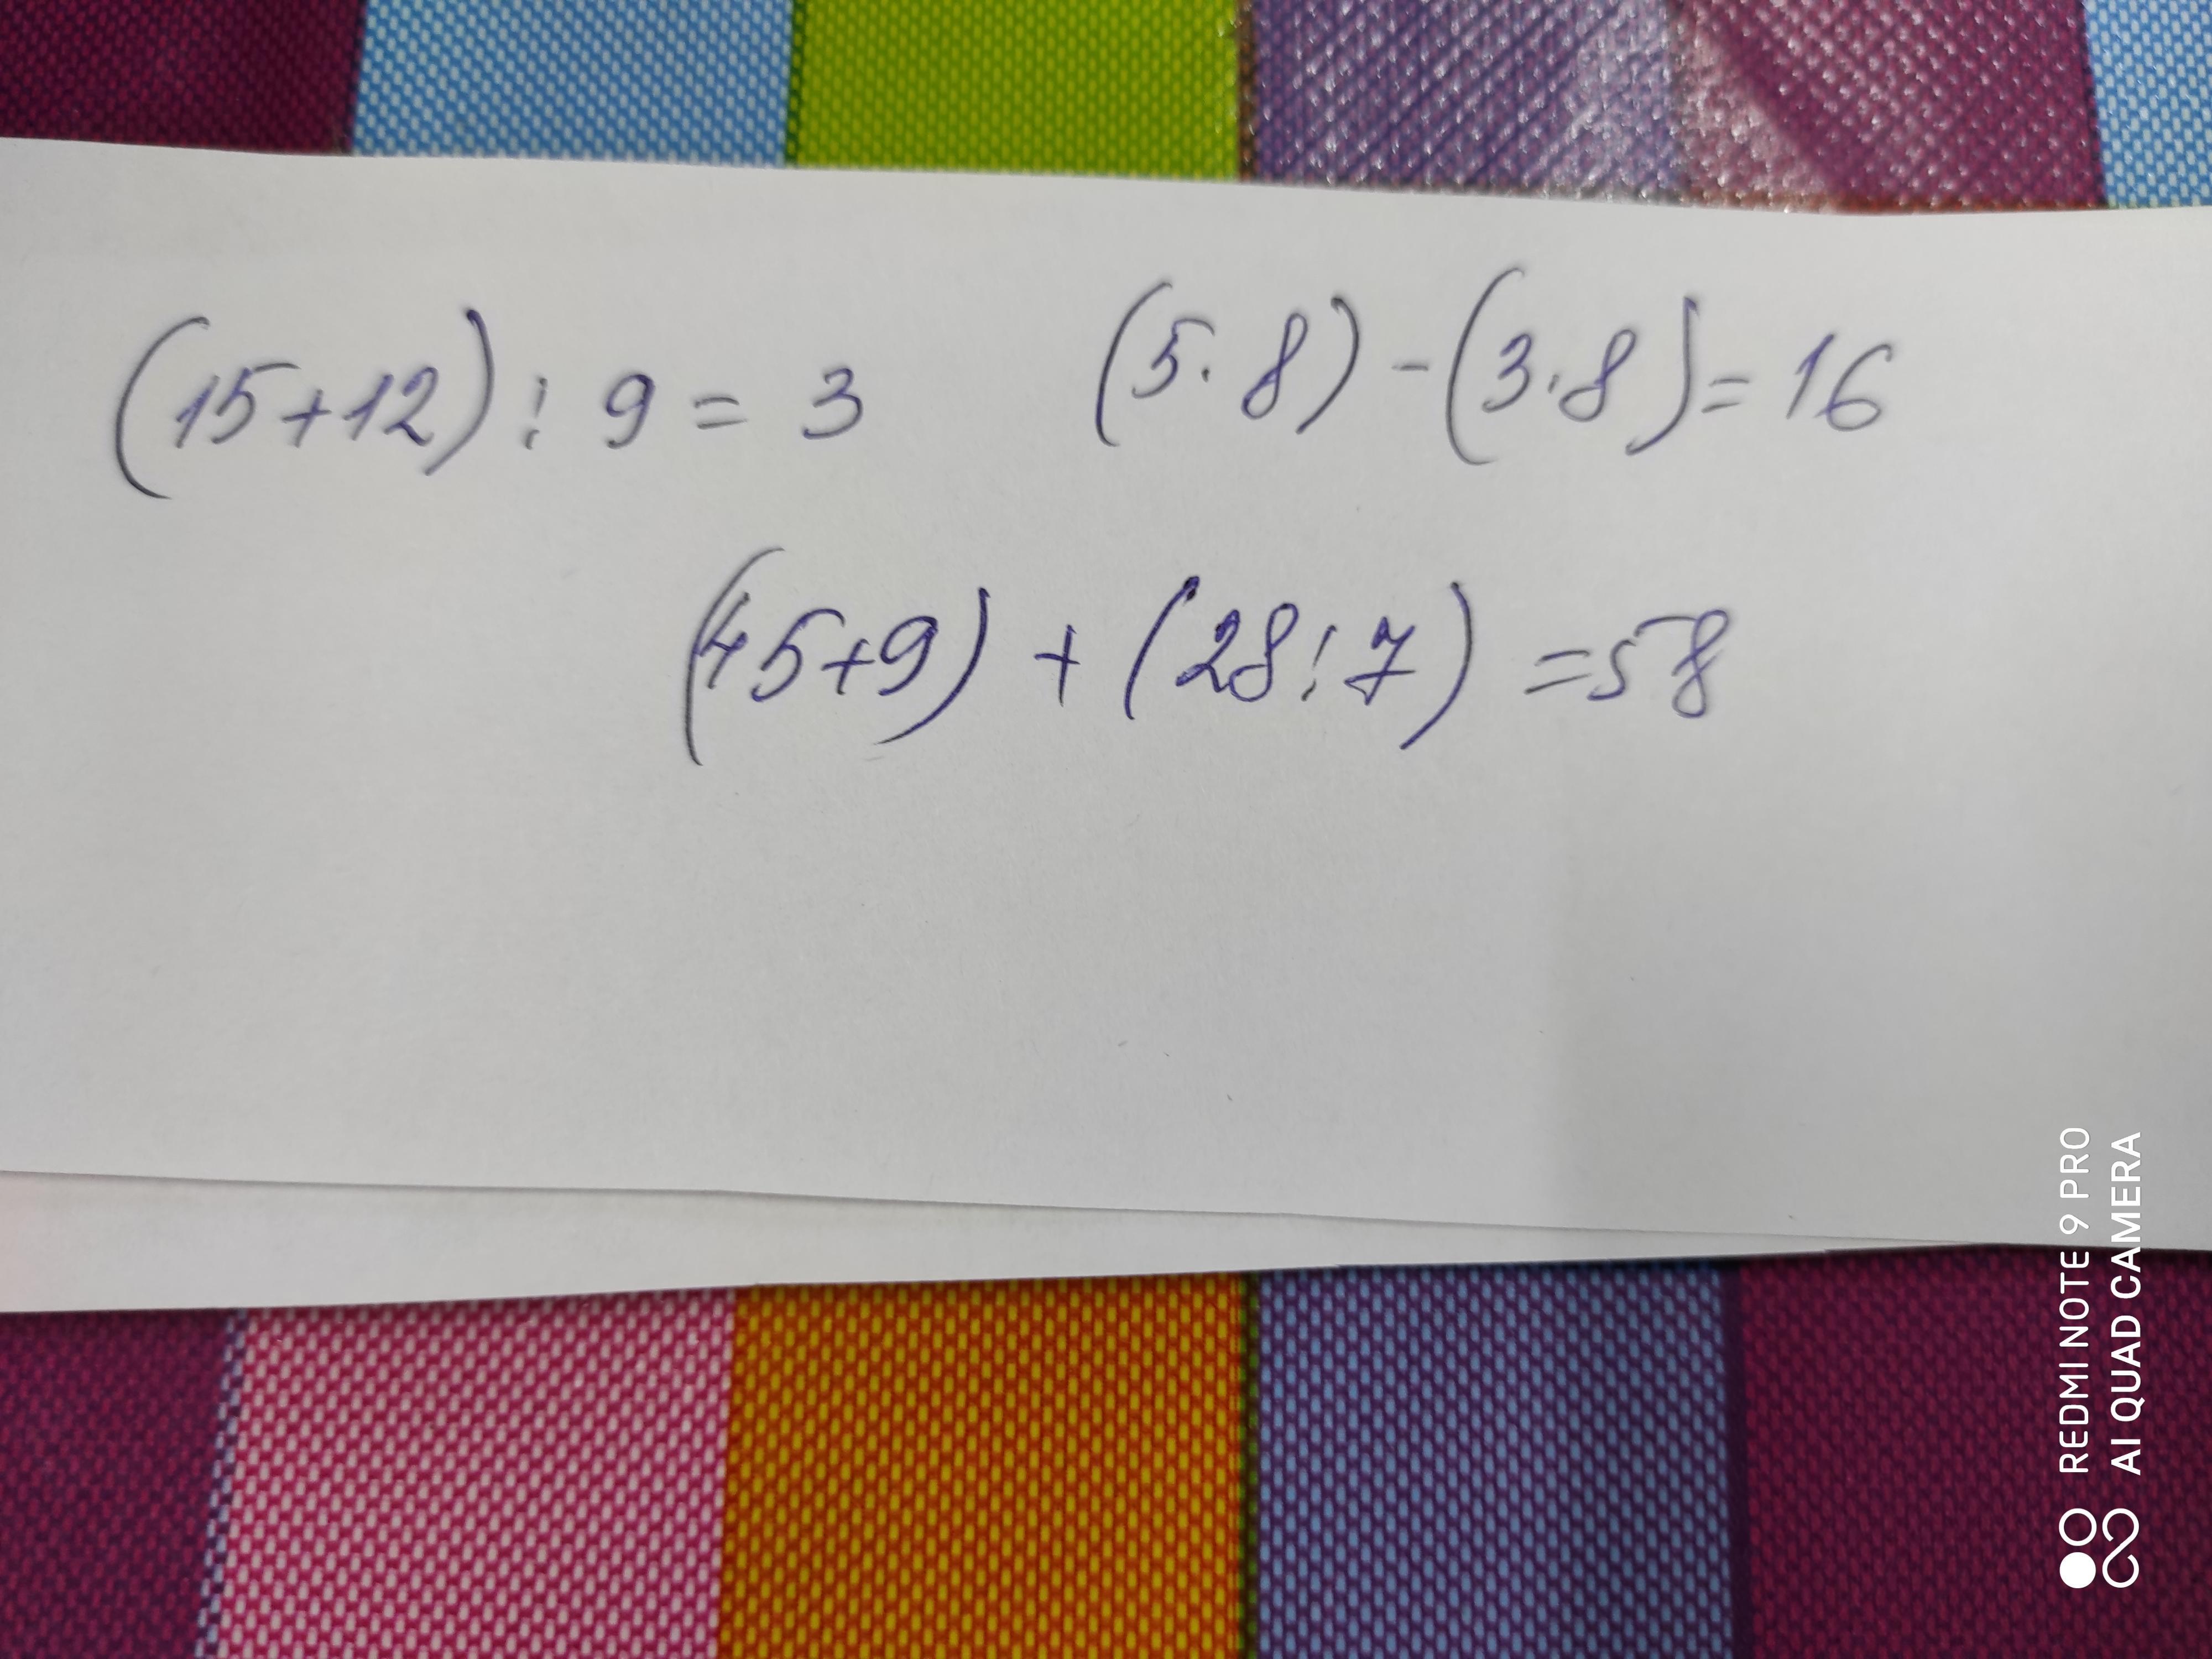 (15+12) : 9 = 3 (5·8) - (3·8) = 16
(45+9) + (28:7) = 58
REDMI NOTE 9 PRO
AI QUAD CAMERA